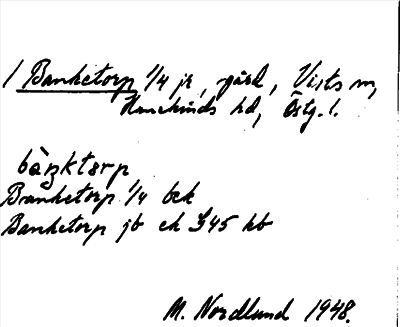 / Banketorp 1/4 jr, gård, Vists sn,
Hanekinds hd, Östg. l.
bàŋktɐrp
Banketorp 1/4 bek
Banketorp jb ek 345 kb
M. Nordlund 1948.